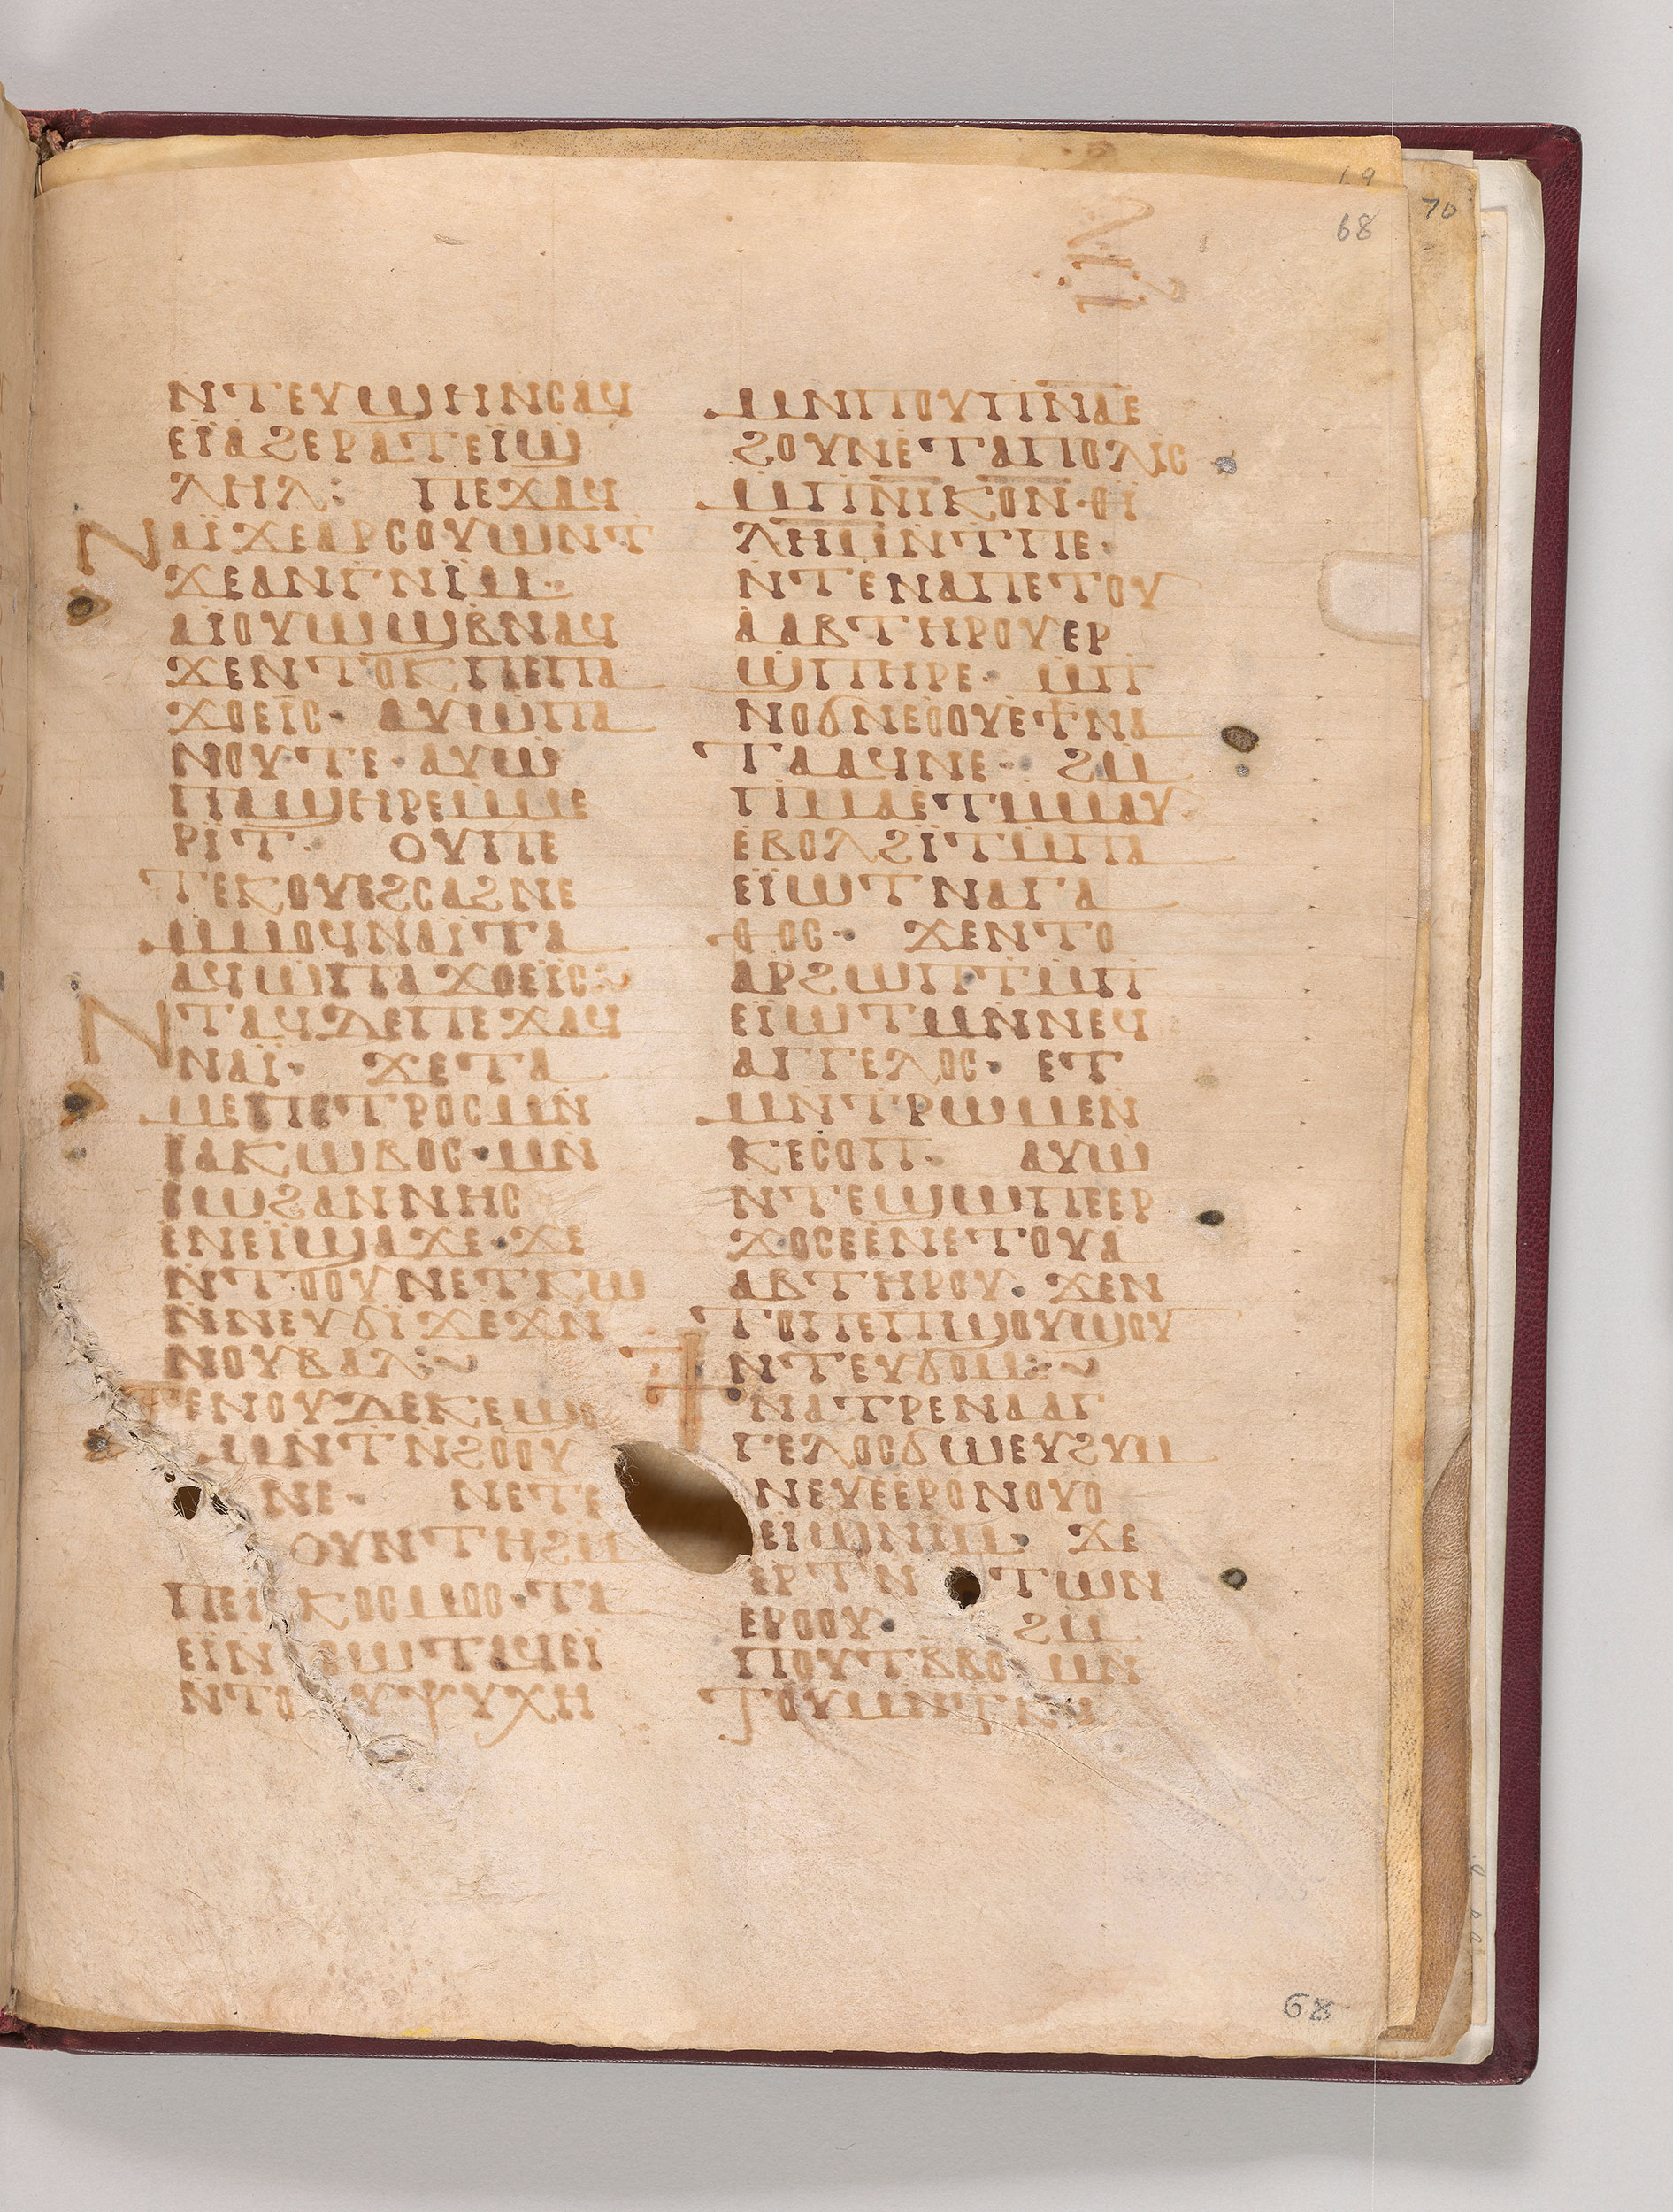 68
69
70
ⲛⲧⲉⲩϣⲏⲛⲥⲁϥ
ⲉⲓ̈ⲁϩⲉⲣⲁⲧⲉⲓ̈ϣ
ⲗⲏⲗ: ⲡⲉϫⲁϥ
ⲛⲁⲓ̈ϫⲉⲁⲣⲥⲟⲩⲱⲛⲧ
ϫⲉⲁⲛⲅⲛⲓⲙ··
ⲁⲓ̈ⲟⲩⲱϣⲃⲛⲁϥ
ϫⲉⲛⲧⲟⲕⲡⲉⲡⲁ
ϫⲟⲉⲓ̈ⲥ· ⲁⲩⲱⲡⲁ
ⲛⲟⲩⲧⲉ· ⲁⲩⲱ
ⲡⲁϣⲏⲣⲉⲙⲙⲉ
ⲣⲓ̈ⲧ· ⲟⲩⲡⲉ
ⲧⲉⲕⲟⲩⲉϩⲥⲁϩⲛⲉ
ⲙⲙⲟϥⲛⲁⲓ̈ⲧⲁ
ⲁϥⲱⲡⲁϫⲟⲉⲓ̈ⲥ:
ⲛⲧⲁϥⲇⲉⲡⲉϫⲁϥ
ⲛⲁⲓ̈· ϫⲉⲧⲁ
ⲙⲉⲡⲉⲧⲣⲟⲥⲙⲛ
ⲓⲁⲕⲱⲃⲟⲥ·ⲙⲛ
ⲓⲱϩⲁⲛⲛⲏⲥ
ⲉⲛⲉⲓ̈ϣⲁϫⲉ·ϫⲉ
ⲛⲧⲟⲟⲩⲛⲉⲧⲕⲱ
ⲛⲛⲉⲩϭⲓϫⲉϫⲛ
ⲛⲟⲩⲃⲁⲗ:
ⲧⲉⲛⲟⲩⲇⲉⲕⲉ
ⲙⲛⲧⲛϩⲟⲟⲩ
ⲛⲉ· ⲛⲉⲧⲉ
ⲟⲩⲛⲧⲏϩⲙ
ⲡⲉⲓ ⲕⲟⲥⲙⲟⲥ·ⲧⲁ
ⲉⲓ̈ⲛ ⲥⲱⲧⲙⲉⲓ̈
ⲛⲧⲟ ⲟⲩⲯⲩⲭⲏ
ⲙⲛⲡⲟⲩⲡⲛⲁⲉ
ϩⲟⲩⲛⲉⲧⲁⲡⲟⲗⲓⲥ
ⲙⲡⲛⲓⲕⲟⲛ·ⲑⲓ
ⲗⲏⲙⲛⲧⲡⲉ·
ⲛⲧⲉⲛⲁⲡⲉⲧⲟⲩ
ⲁⲁⲃⲧⲏⲣⲟⲩⲉⲣ
ϣⲡⲏⲣⲉ· ⲙⲡ
ⲛⲟϭⲛⲉⲟⲟⲩⲉϯⲛⲁ
ⲧⲁⲁϥⲛⲉ· ϩⲙ
ⲡⲙⲁⲉⲧⲙⲙⲁⲩ·
ⲉⲃⲟⲗϩⲓ̈ⲧⲙⲡⲁ
ⲉⲓ̈ⲱⲧⲛⲁⲅⲁ
ⲑⲟⲥ· ϫⲉⲛⲧⲟ
ⲁⲣϩⲱⲡⲧⲙⲡ
ⲉⲓ̈ⲱⲧⲙⲛⲛⲉϥ
ⲁⲅⲅⲉⲗⲟⲥ· ⲉⲧ
ⲙⲛⲧⲣⲱⲙⲉⲛ
ⲕⲉⲥⲟⲡ· ⲁⲩⲱ
ⲛⲧⲉϣⲱⲡⲉⲉⲣ
ϫⲟⲥⲉⲉⲛⲉⲧⲟⲩⲁ
ⲁⲃⲧⲏⲣⲟⲩ· ϫⲉⲛ
ⲧⲟⲡⲉⲡϣⲟⲩϣⲟⲩ
ⲛⲧⲉⲩϭⲟⲙ:
ϯⲛⲁⲧⲣⲉⲛⲁⲁⲅ
ⲅⲉⲗⲟⲥϭⲱⲉⲩϩⲩⲙ
ⲛⲉⲩⲉⲉⲣⲟⲛⲟⲩⲟ
ⲉⲓϣⲛⲓⲙ· ϫⲉ
ⲉⲣⲧⲛ ⲧⲱⲛ
ⲉⲣⲟⲟⲩ· ϩⲙ
ⲡⲟⲩⲧⲃⲃⲟ ⲙⲛ
ⲧⲟⲩⲙⲛⲧ
68